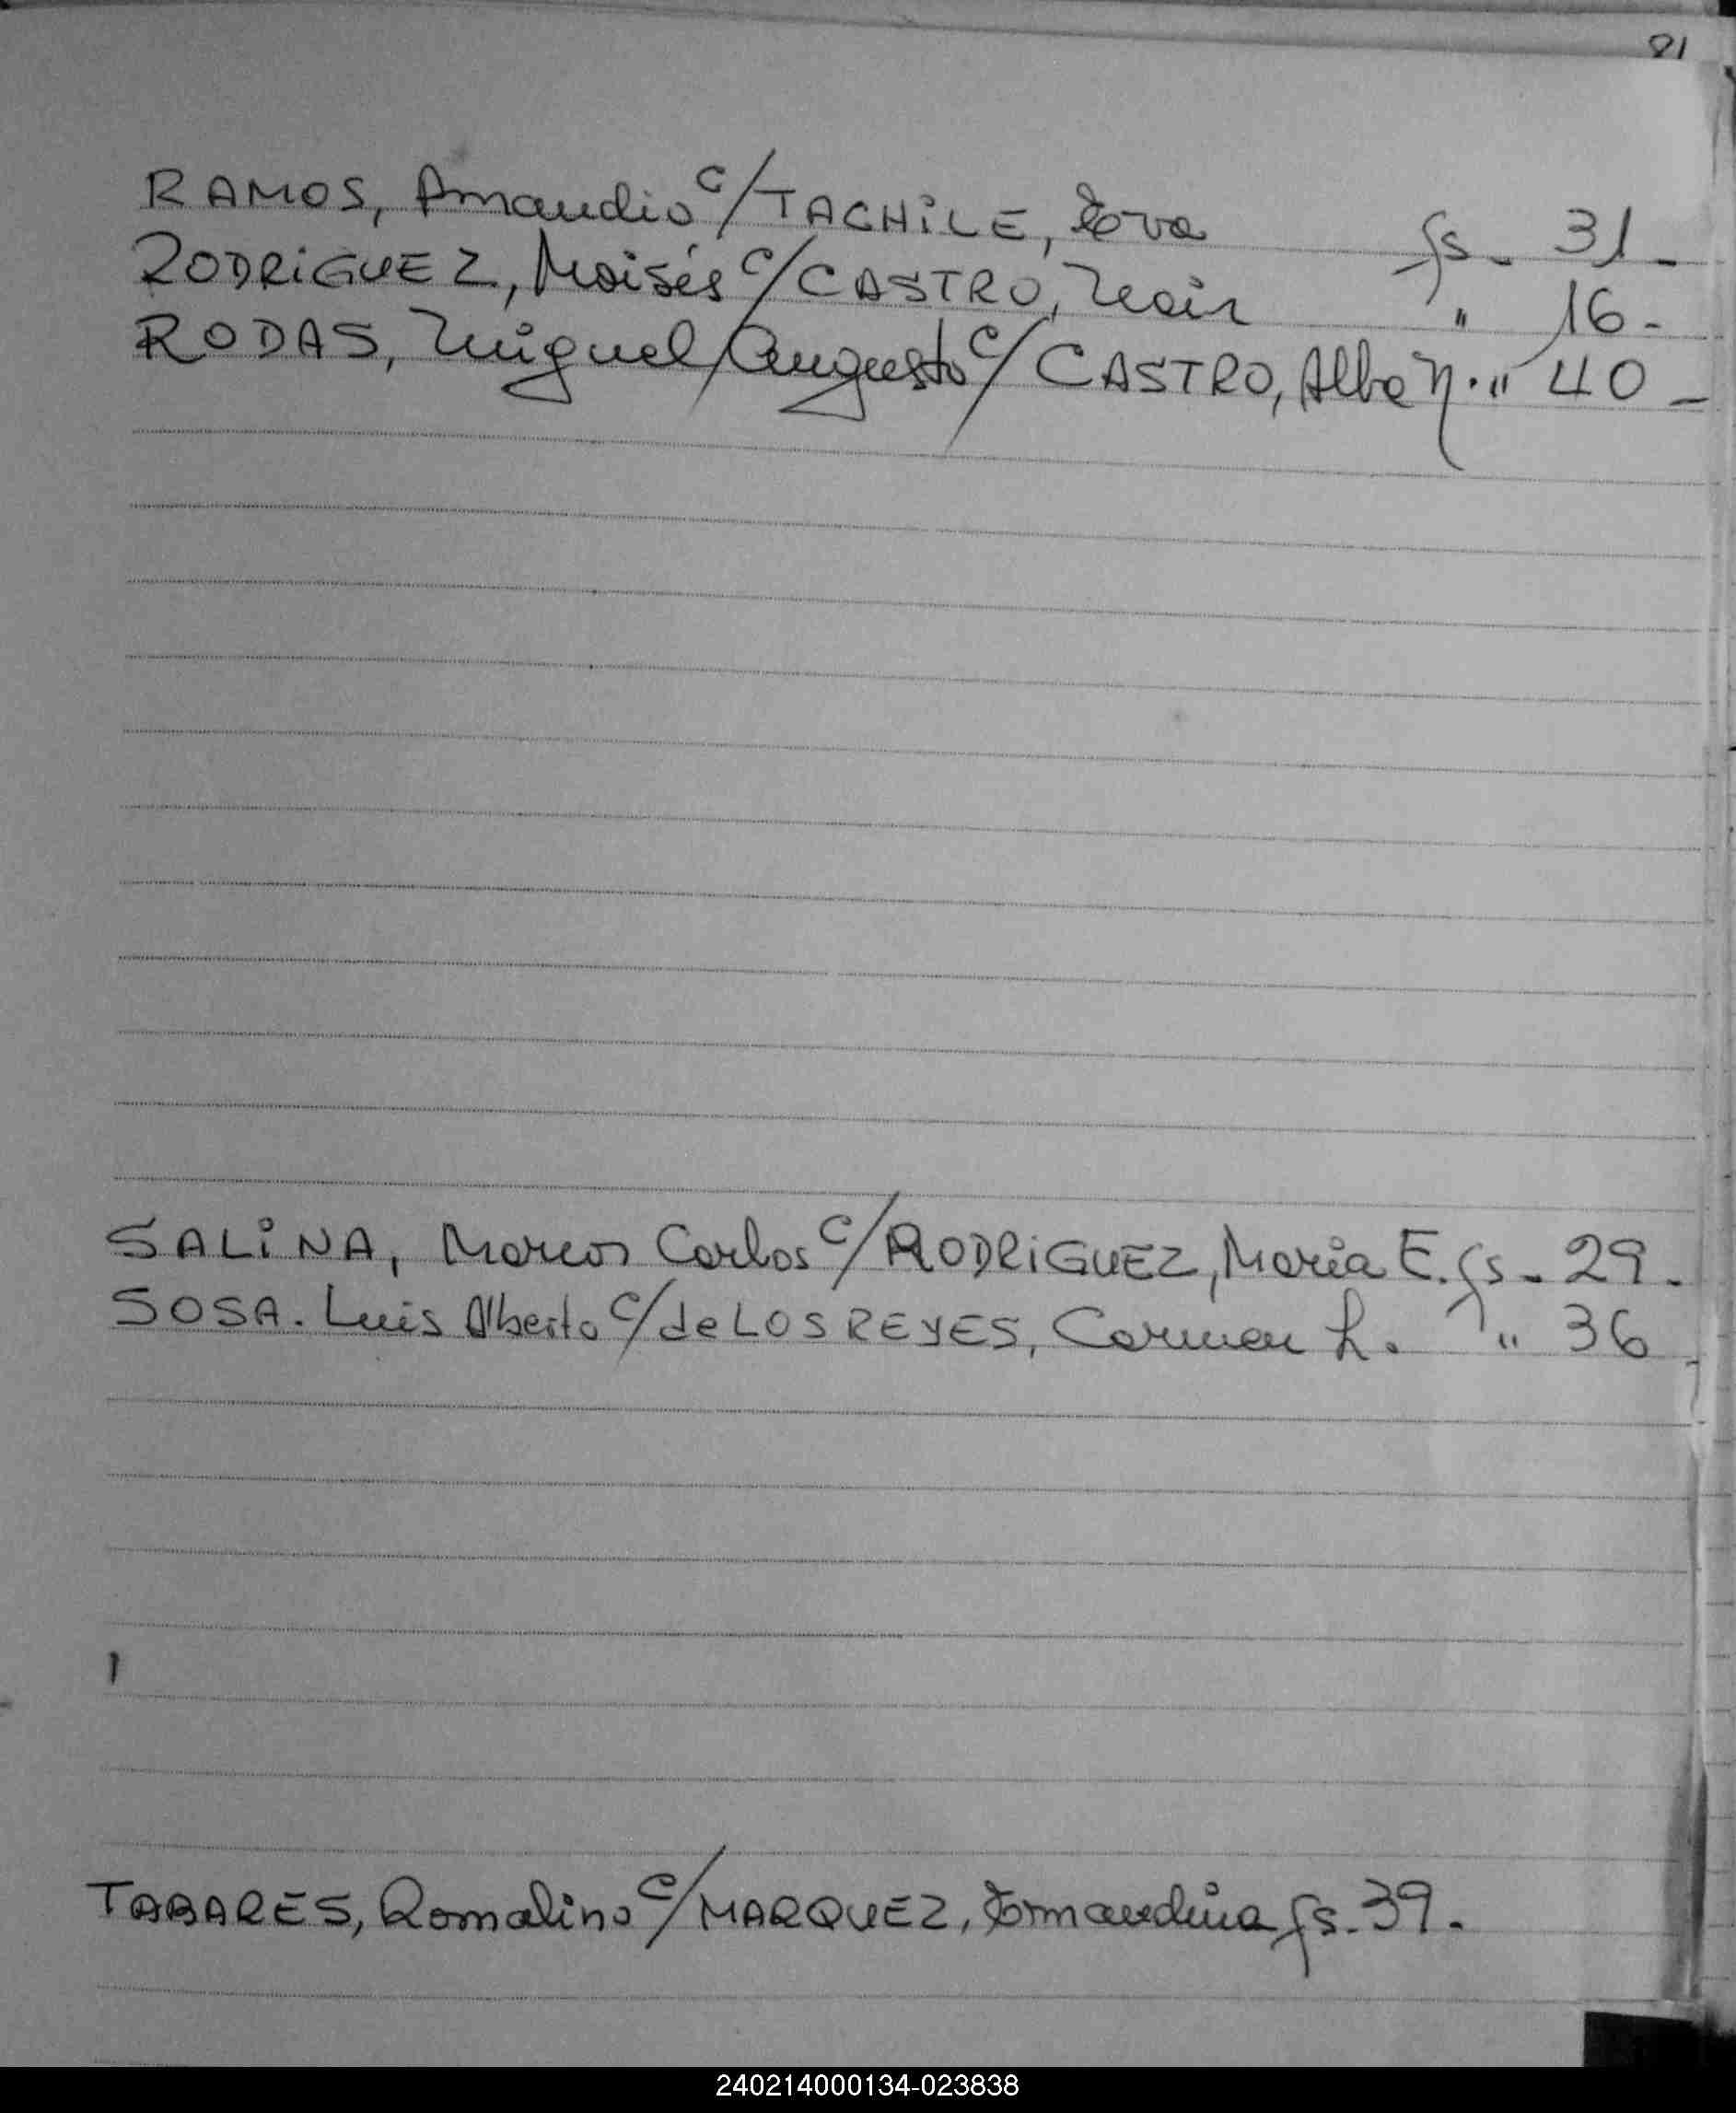 81
RAMOS, Amandio c/ TACHiLE, Eva fs. 31.
RODRiGUEZ, Moisés c/ CASTRO, Nair " 16.
RODAS, Miguel Augusto c/ CASTRO, Alba N. " 40
SALiNA, Marcos Carlos c/ RODRiGUEZ, María E. fs. 29.
SOSA. Luis Alberto c/ de LOS REYES, Carmen L. " 36
TABARES, Romalino c/ MARQUEZ, Ermandina fs. 39.
240214000134-023838